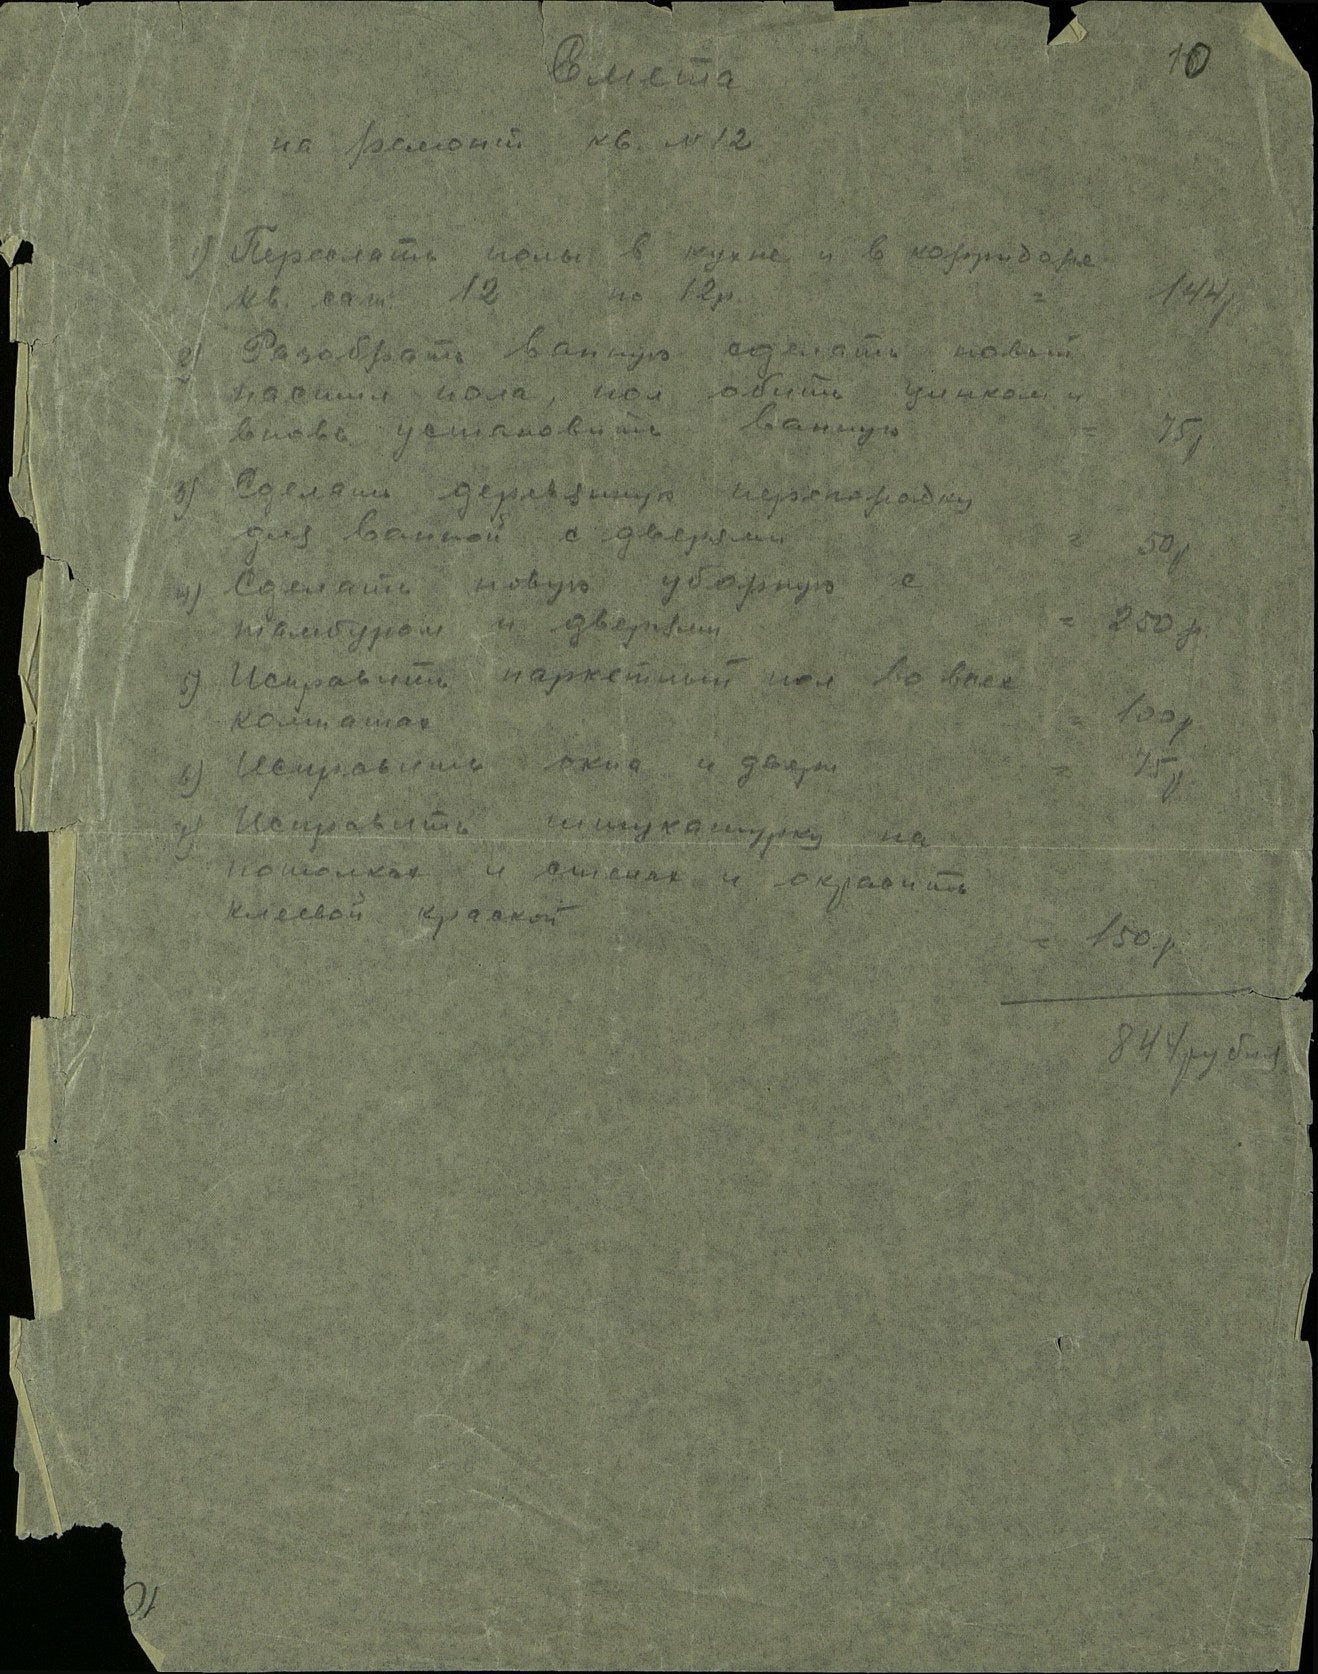 10
Смета
на ремонт кв. № 12
1) Переслать полы в кухне и в корридоре
кв. саж. 12 по 12р. = 144р
2) Разобрать ванную сделать новый
настил пола, пол обить цинком и
вновь установить ванную = 75р.
3) Сделать деревянную перегородку
для ванной с дверями = 50р
4) Сделать новую уборную с
тамбуром и дверями = 250р.
5) Исправить паркетный пол во всех
комнатах = 100р
6) Исправить окна и двери = 75р.
7) Исправить штукатурку на
потолках и стенах и окрасить
клеевой краской
= 150р
844 рубля
10